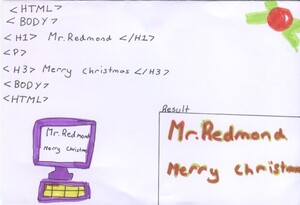 <HTML>
<BODY>
<H1> Mr.Redmond </H1>
<P>
<H3> Merry Christmas </H3>
<BODY>
<HTML>
Mr.Redmond
Merry Christmas
Result
Mr.Redmond
Merry Christmas